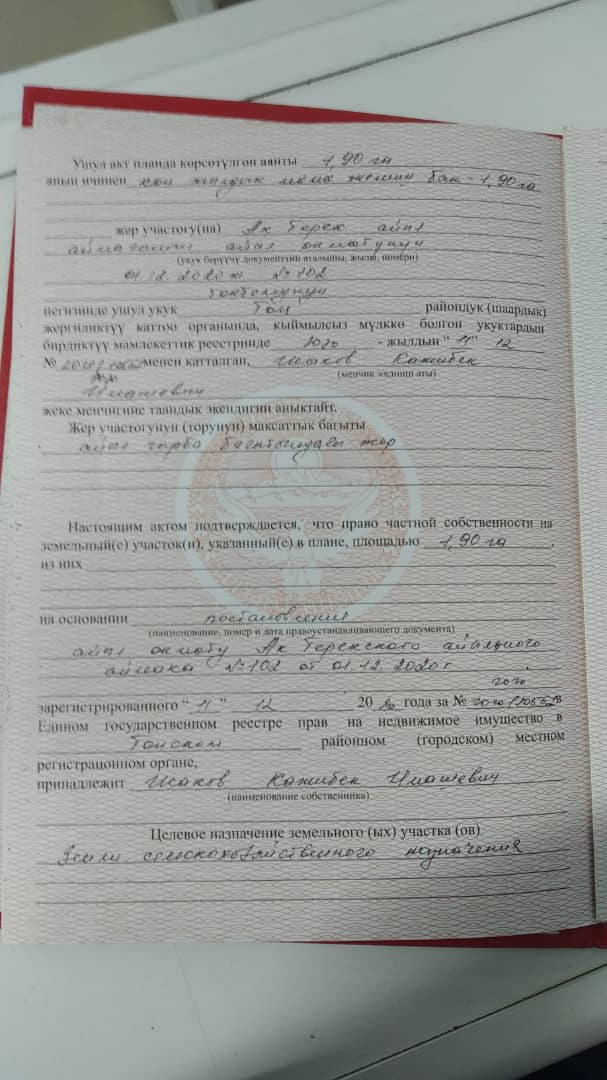 Ушул акт планда көрсөтүлгөн аянты 1,90 га
анын ичинен көп жылдык мөмө жемиш бак - 1,90 га
жер участогу(на) Ак Терек айыл
аймагынын айыл өкмөтүнүн
(укук берүүчү документтин аталышы, жылы, номери)
01.12.2020 ж №102
токтомунун
негизинде ушул укук Тоң райондук (шаардык)
жергиликтүү каттоо органында, кыймылсыз мүлккө болгон укуктардын
бирдиктүү мамлекеттик реестринде 2020 - жылдын " 11 " 12
№ менен катталган, Исаков Кажыбек
(менчик ээсинин аты)
Имашевич
жеке менчигине таандык экендигин аныктайт.
Жер участогунун (торунун) максаттык багыты
айыл чарба багытындагы жер
Настоящим актом подтверждается, что право частной собственности на
земельный(е) участок(и), указанный(е) в плане, площадью 1,90 га,
из них
на основании постановления
(наименование, номер и дата правоустанавливающего документа)
айыл окмоту Ак Терекского айыльного
аймака №102 от 01.12.2020 г
зарегистрированного " 11 " 12 20 20 года за № в
Едином государственном реестре прав на недвижимое имущество в
Тонском районном (городском) местном
регистрационном органе,
принадлежит Исаков Кажибек Имашевич
(наименование собственника)
Целевое назначение земельного (ых) участка (ов)
Земли сельскохозяйственного назначения